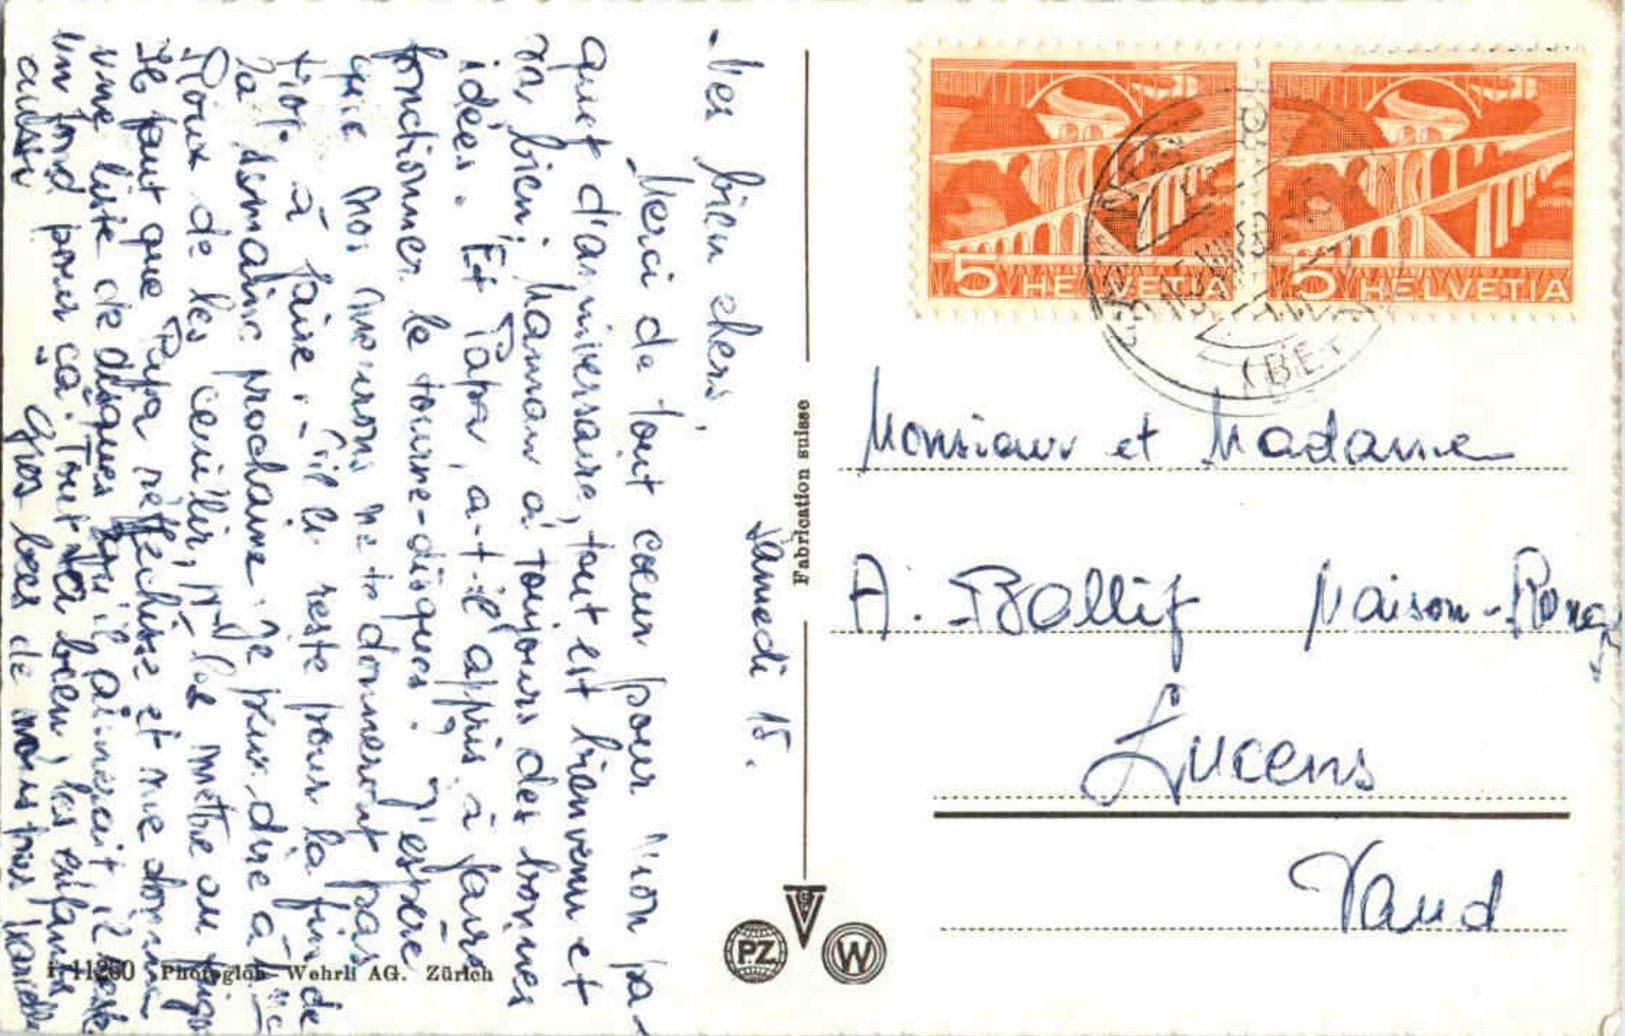 Samedi 15.
Mes bien chers,
Merci de tout coeur pour mon pa-
quet d'anniversaire, tout est bienvenu et
va bien, Maman a toujours des bonnes
idées. Et Papa, a-t-il appris à faire
fonctionner le tourne-disques? J'espère
que nos mourons ne te donneront pas
trop à faire, s'il reste pour la fin de
la semaine prochaine. Je peux dire à Mme
Roux de les cueillir, et les mettre au frigo
Il faut que Papa réfléchisse et me donne
une liste de disques qu'il aimerait, il reste
un fond pour ça. Tout va bien, les enfants
aussi. Gros becs de nous tous
Fabrication suisse
11260 Photoglob-Wehrli AG. Zürich
PZ
W
5 HELVETIA
5 HELVETIA
(BE
Monsieur et Madame
A. Bollif Maison-Rouge
Lucens
Vaud